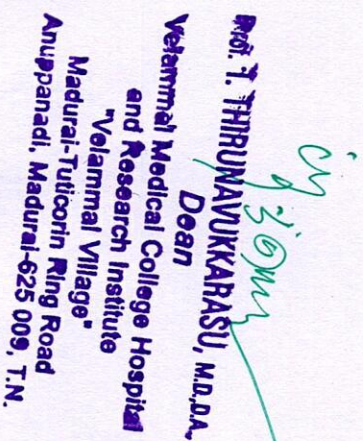 Prof. T. THIRUNAVUKKARASU, M.D.,DA.,
Dean
Velammal Medical College Hospital
and Research Institute
"Velammal Village"
Madurai-Tuticorin Ring Road
Anuppanadi, Madurai-625 009, T.N.